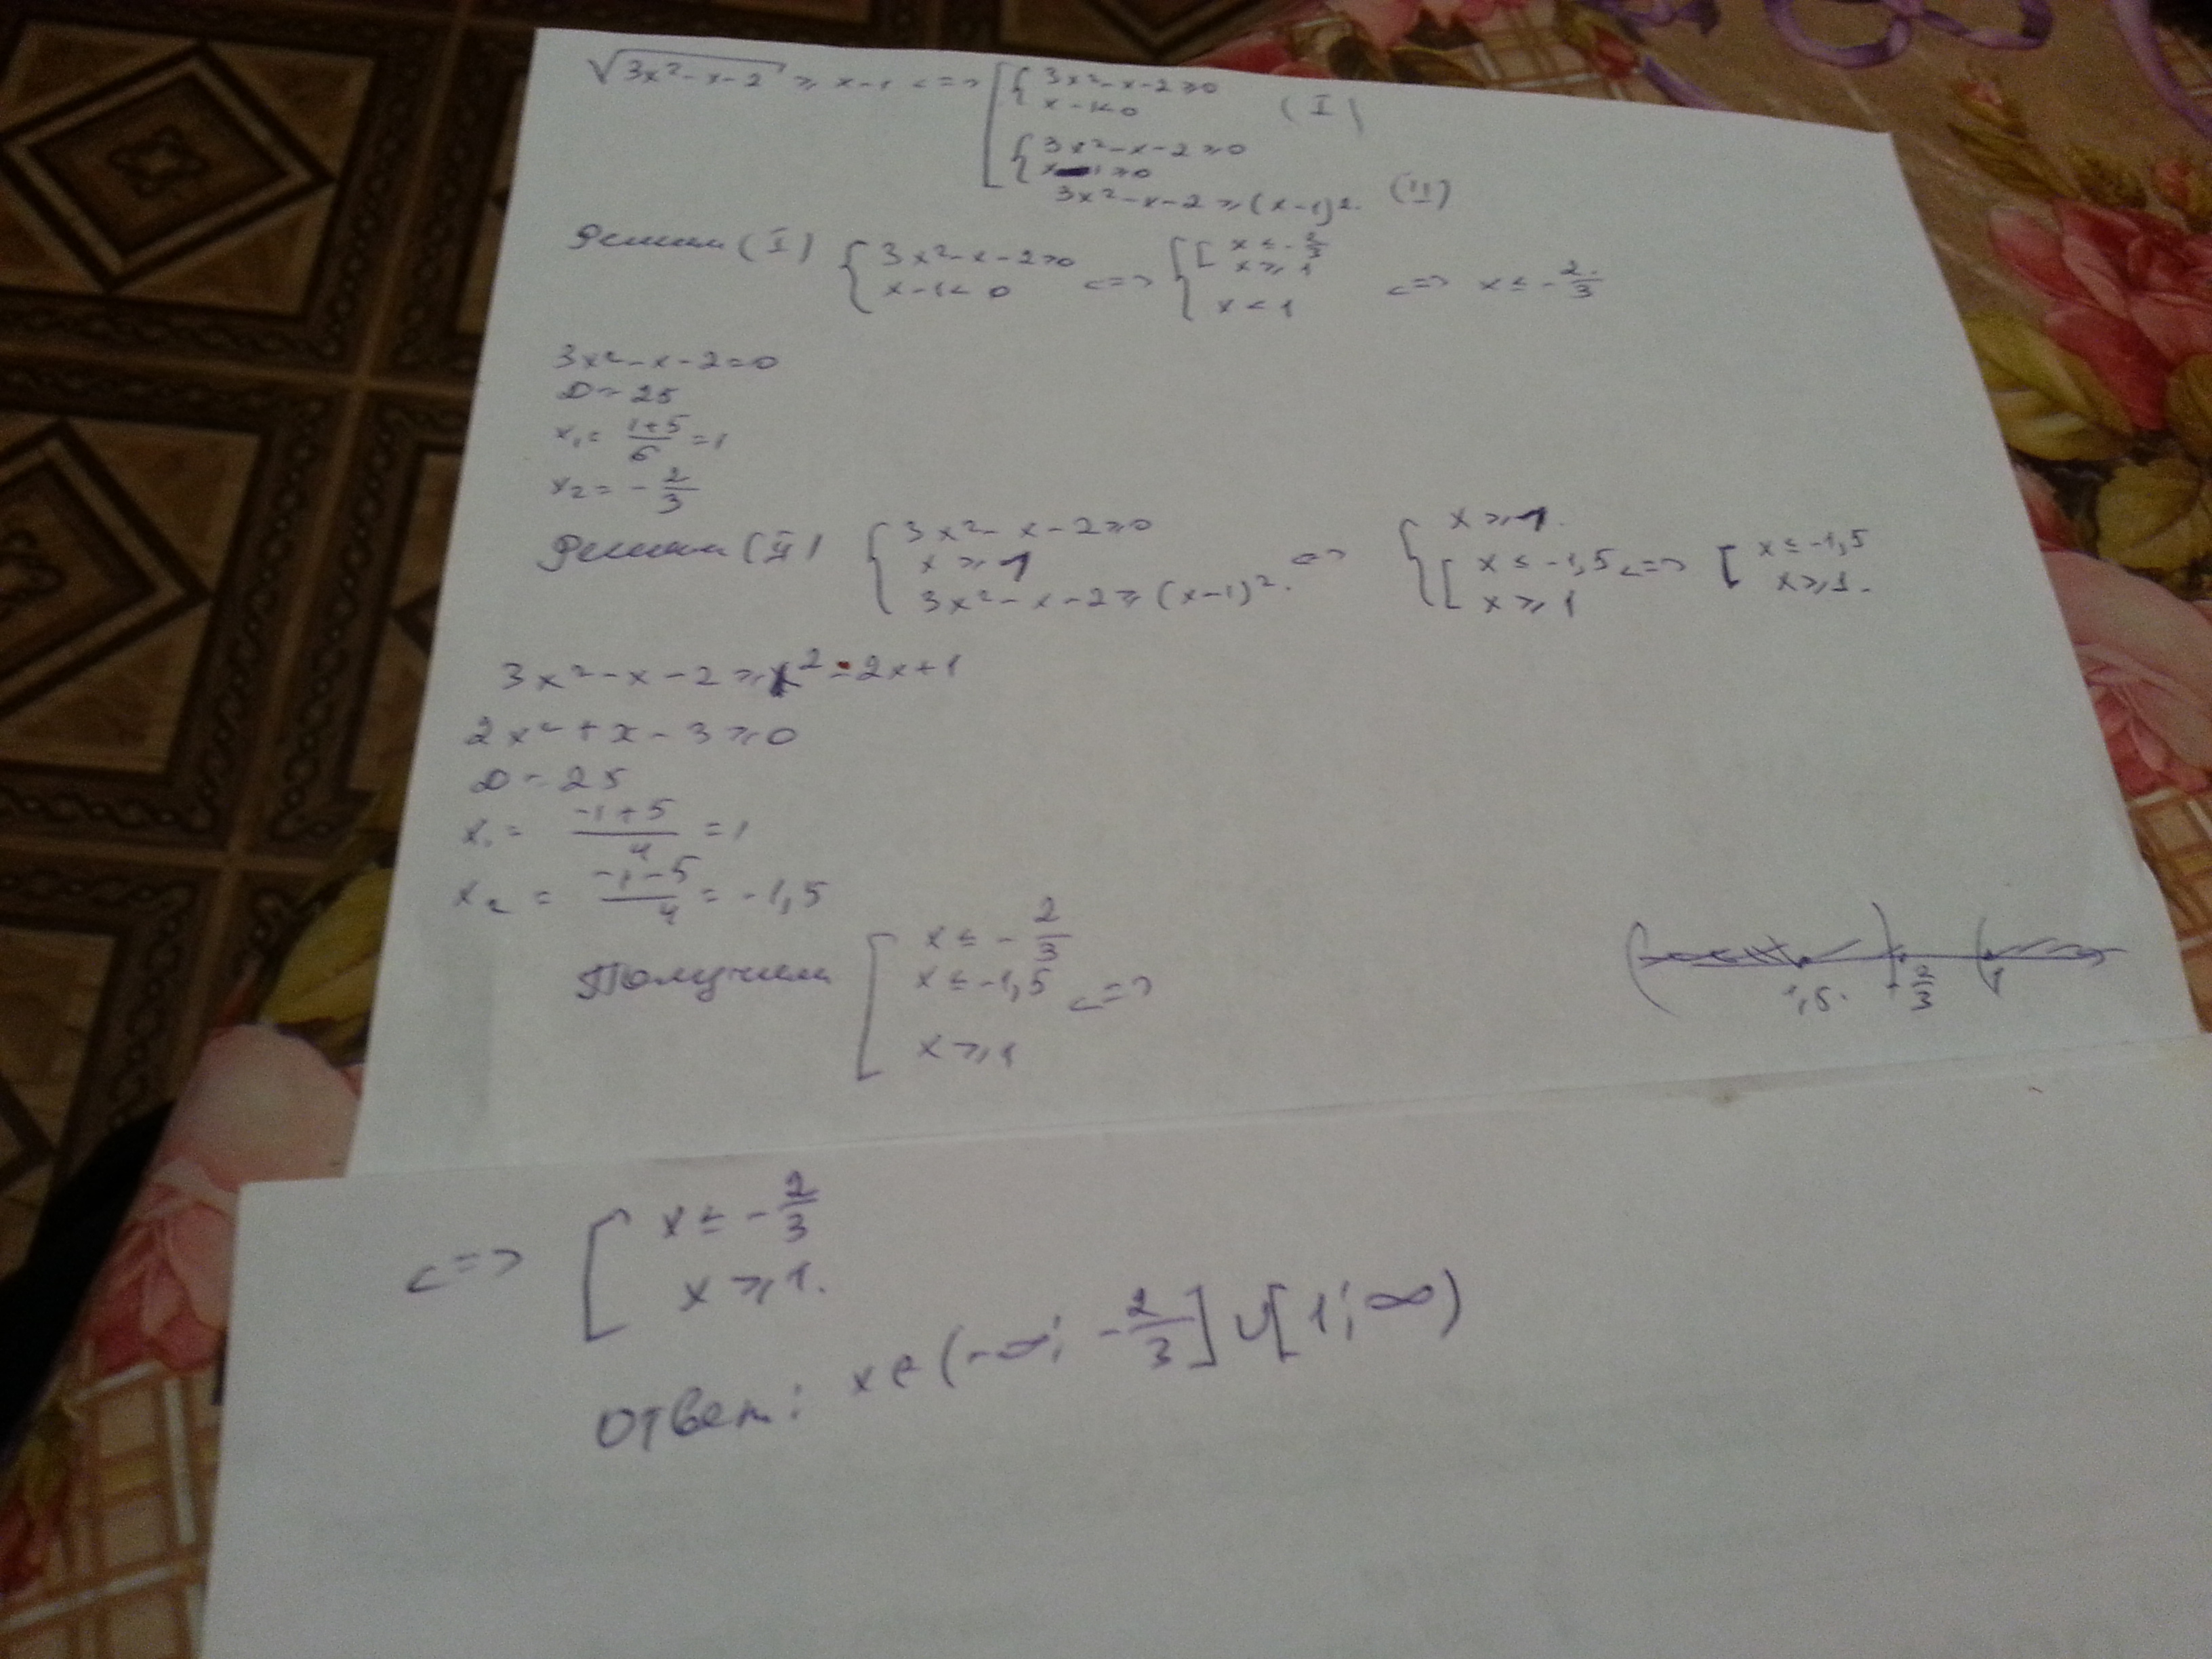 √(3x²-x-2) ≥ x-1 <=> [ { 3x²-x-2≥0
x-1<0 (I)
{ 3x²-x-2≥0
x-1≥0
3x²-x-2≥(x-1)². (II)
Решим (I) { 3x²-x-2≥0
x-1<0 <=> { [ x≤-2/3
x≥1
x<1 <=> x≤-2/3
3x²-x-2=0
D=25
x₁= (1+5)/6 =1
x₂=-2/3
Решим (II) { 3x²-x-2≥0
x≥1
3x²-x-2≥(x-1)². <=> { x≥1.
[ x≤-1,5
x≥1 <=> [ x≤-1,5
x≥1.
3x²-x-2≥x²-2x+1
2x²+x-3≥0
D=25
x₁= (-1+5)/4 =1
x₂ = (-1-5)/4 = -1,5
Получим [ x≤-2/3
x≤-1,5
x≥1 <=>
-1,5. -2/3 1
<=> [ x≤-2/3
x≥1.
Ответ: x∈(-∞; -2/3]∪[1;∞)